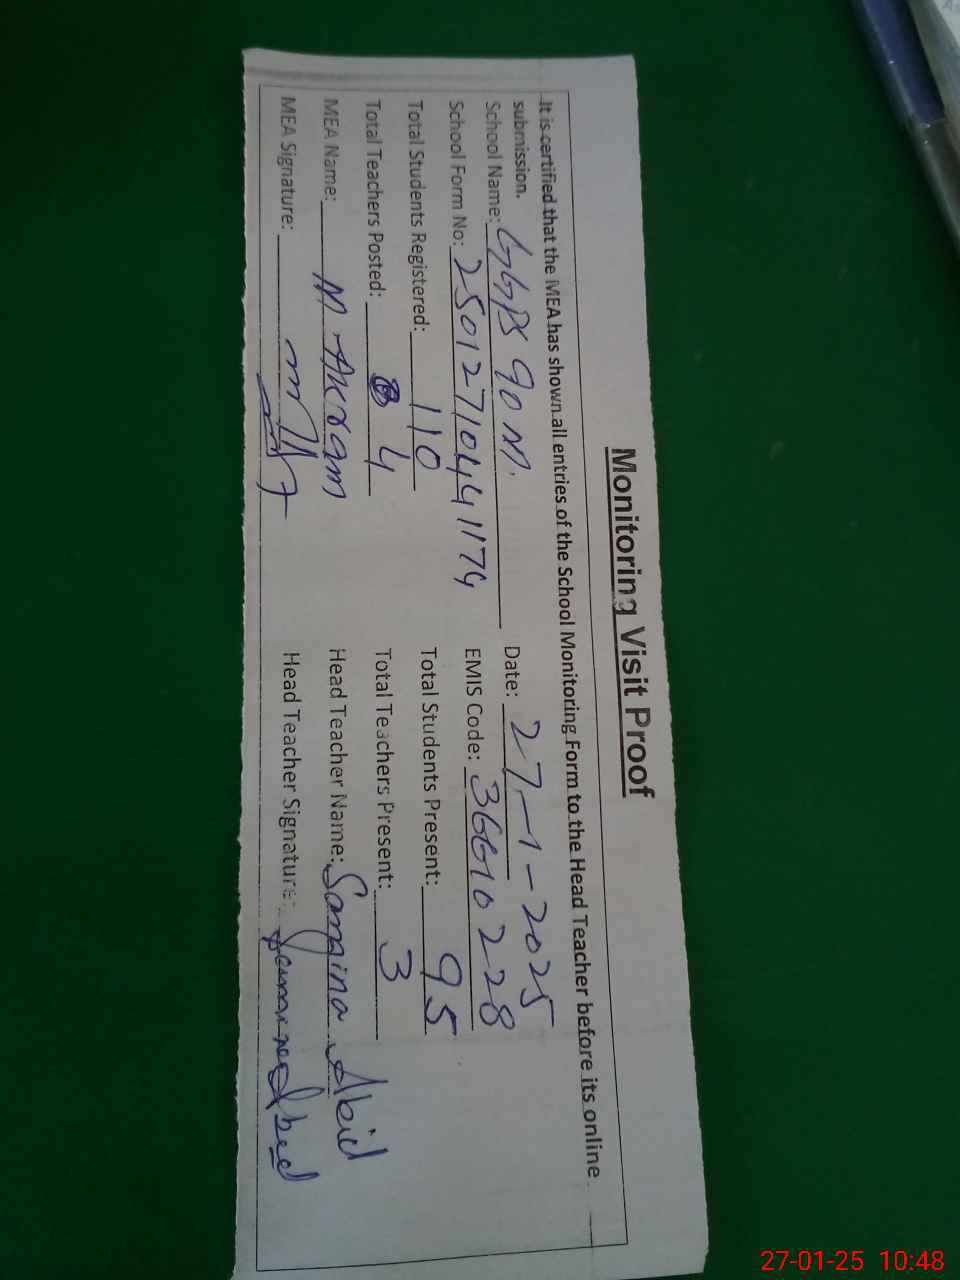 Monitoring Visit Proof
It is certified that the MEA has shown all entries of the School Monitoring Form to the Head Teacher before its online
submission.
School Name: GGPS 90 M. Date: 27-1-2025
School Form No: 250127104411174 EMIS Code: 36610228
Total Students Registered: 110 Total Students Present: 95
Total Teachers Posted: 4 Total Teachers Present: 3
MEA Name: M Akram Head Teacher Name: Samina Abid
MEA Signature: Head Teacher Signature:
27-01-25 10:48